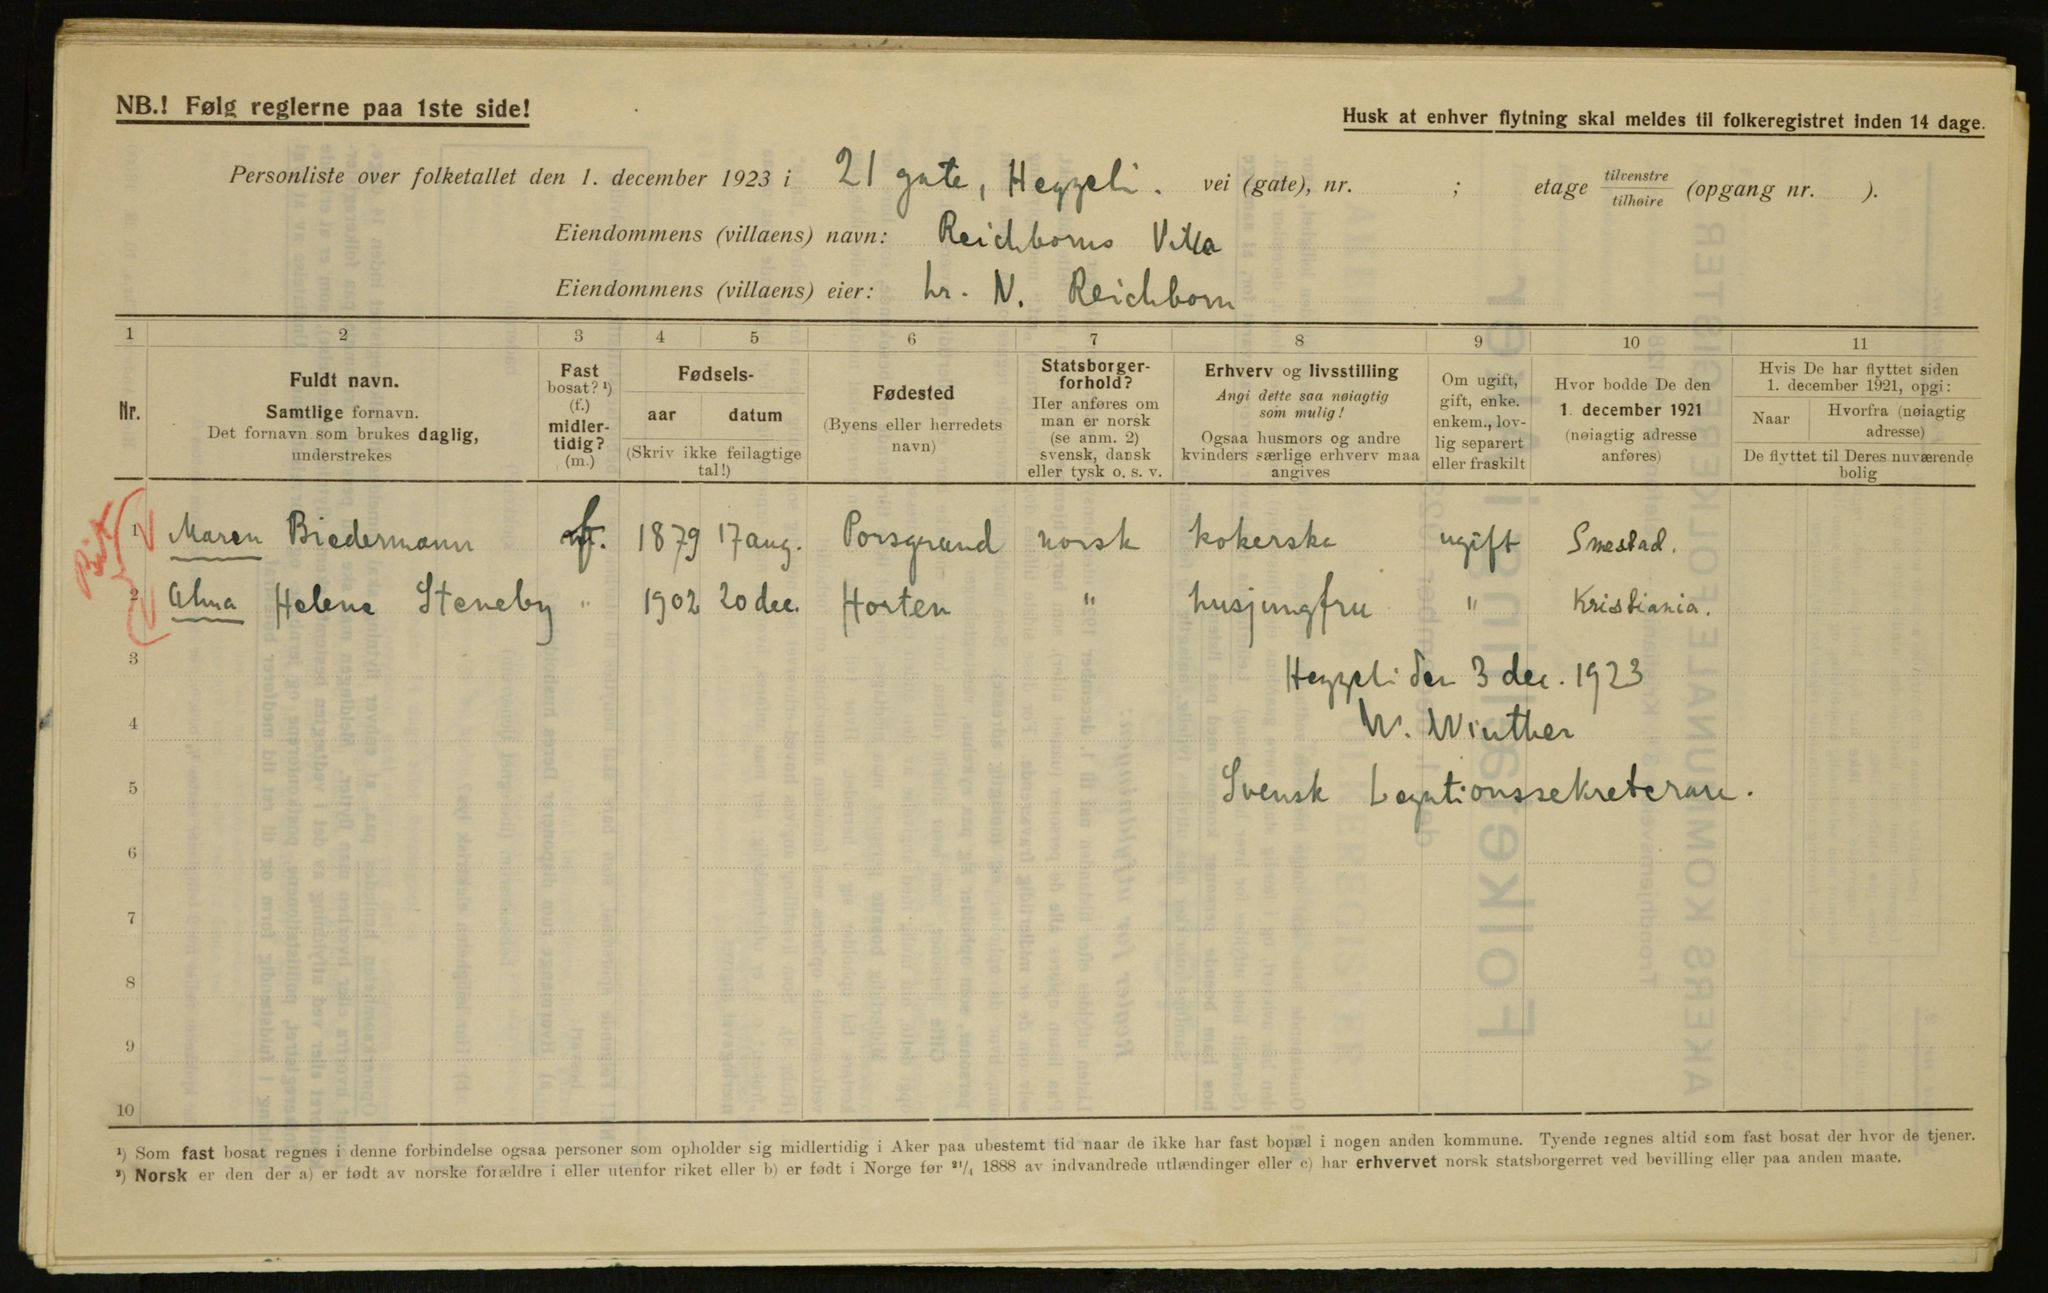 NB.! Følg reglerne paa 1ste side!
Husk at enhver flytning skal meldes til folkeregistret inden 14 dage.
Personliste over folketallet den 1. december 1923 i 21 gate, Heggeli. vei (gate), nr. ; etage tilvenstre/tilhøire (opgang nr. ).
Eiendommens (villaens) navn: Reichborns Villa
Eiendommens (villaens) eier: hr. N. Reichborn
1 2 3 4 5 6 7 8 9 10 11
Nr.
Fuldt navn.
Samtlige fornavn.
Det fornavn som brukes daglig,
understrekes
Fast
bosat? ¹)
(f.)
midler-
tidig?
(m.)
Fødsels-
aar datum
(Skriv ikke feilagtige
tal!)
Fødested
(Byens eller herredets
navn)
Statsborger-
forhold?
Her anføres om
man er norsk
(se anm. 2)
svensk, dansk
eller tysk o. s. v.
Erhverv og livsstilling
Angi dette saa nøiagtig
som mulig!
Ogsaa husmors og andre
kvinders særlige erhverv maa
angives
Om ugift,
gift, enke.
enkem., lov-
lig separert
eller fraskilt
Hvor bodde De den
1. december 1921
(nøiagtig adresse
anføres)
Hvis De har flyttet siden
1. december 1921, opgi:
Naar
Hvorfra (nøiagtig
adresse)
De flyttet til Deres nuværende
bolig
1 Maren Biedermann f. 1879 17 aug. Porsgrund norsk kokerska ugift Smestad.
2 Alma Helene Steneby " 1902 20 dec. Horten " husjungfru " Kristiania.
3 Heggeli den 3 dec. 1923
4 W. Winther
5 Svensk Legationssekreterare.
6
7
8
9
10
¹) Som fast bosat regnes i denne forbindelse ogsaa personer som opholder sig midlertidig i Aker paa ubestemt tid naar de ikke har fast bopæl i nogen anden kommune. Tyende regnes altid som fast bosat der hvor de tjener.
²) Norsk er den der a) er født av norske forældre i eller utenfor riket eller b) er født i Norge før ²¹/₄ 1888 av indvandrede utlændinger eller c) har erhvervet norsk statsborgerret ved bevilling eller paa anden maate.